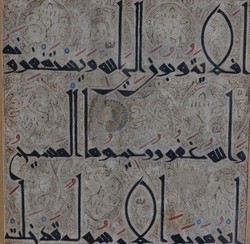 افلا يتوبون الى الله ويستغفرونه
والله غفور رحيم ما المسيح
ابن مريم الا رسول قد خلت